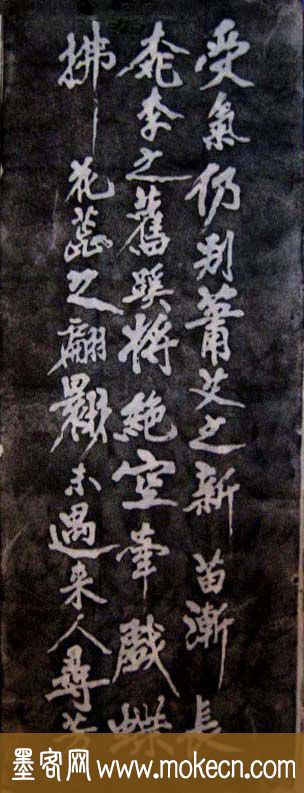 受氣仍別蕭艾之新苗漸長
桃李之舊蹊將絕空牽戲蝶
拂花蕊之翩翾未遇来人尋芳
墨客网www.mokecn.com